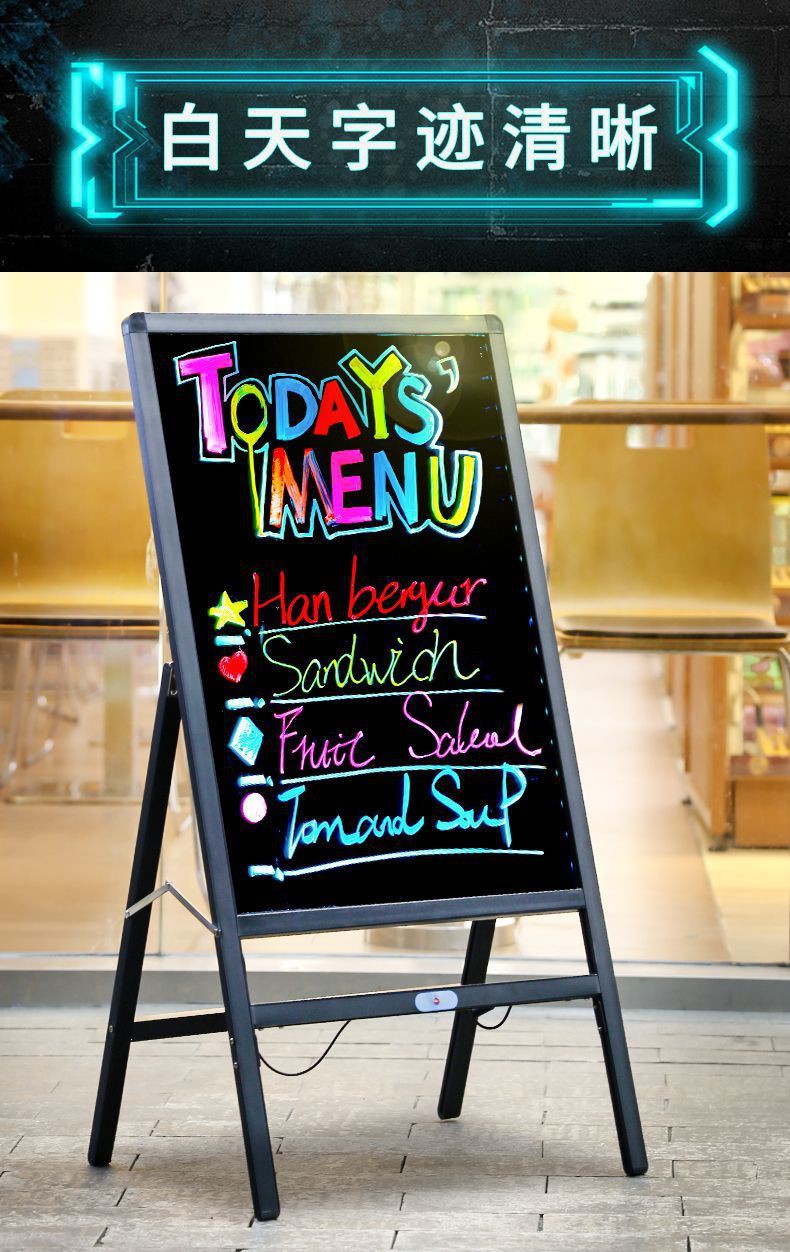 白天字迹清晰
TODAYS'
MENU
Han bergur
Sandwich
Fruit Salad
Tomand SouP